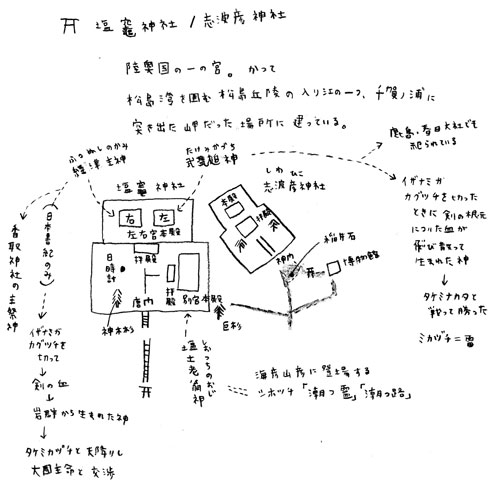 塩竈神社 / 志波彦神社
陸奥国の一の宮。かつて
松島湾を囲む松島丘陵の入り江の一つ、千賀ノ浦に
突き出た岬だった場所に建っている。
ふつぬしのかみ
経津主神
たけみかづち
武甕槌神
鹿島・春日大社でも
祀られている
塩竈神社
右
左
左右宮本殿
拝殿
日時計
唐門
拝殿
別宮本殿
神木杉
しわひこ
志波彦神社
本殿
拝殿
神門
稲井石
博物館
巨杉
しおつちのおじ
塩土老翁神
海彦山彦に登場する
シホツチ「潮つ霊」「潮つ路」
香取神社の主祭神
(日本書紀のみ)
イザナミが
カグツチを
切って
剣の血
岩群から生まれた神
タケミカヅチと天降りし
大国主命と交渉
イザナミが
カグツチを切った
ときに剣の根元
についた血が
飛び散って
生まれた神
タケミナカタと
戦って勝った
ミカヅチ=雷